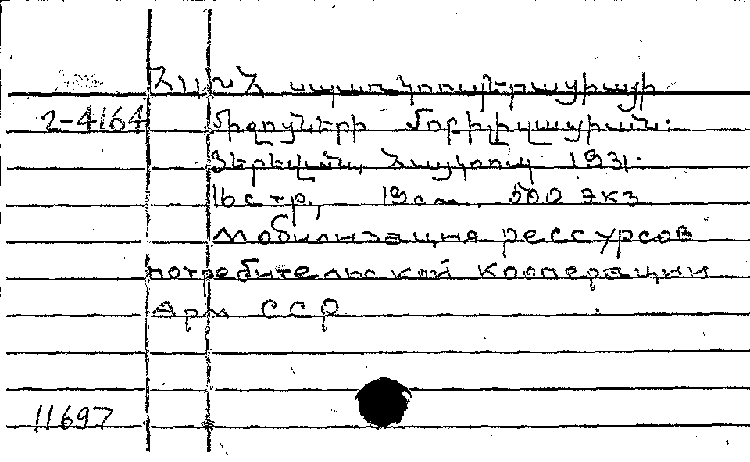 ՀՍԽՀ սպառկոոպերացիայի
2-4164 միջոցների մոբիլիզացիան:
Յերեվան, Հայկոոպ 1931.
16 стр., 19см. 500 экз
мобилизация рессурсов
потребительской кооперации
Арм ССР
11697